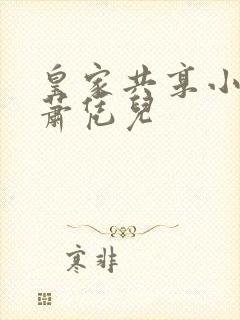 皇家共享小
萧恁儿
寒非